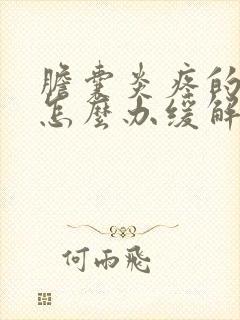 膽囊炎疼的
怎麼办缓解
何雨飛